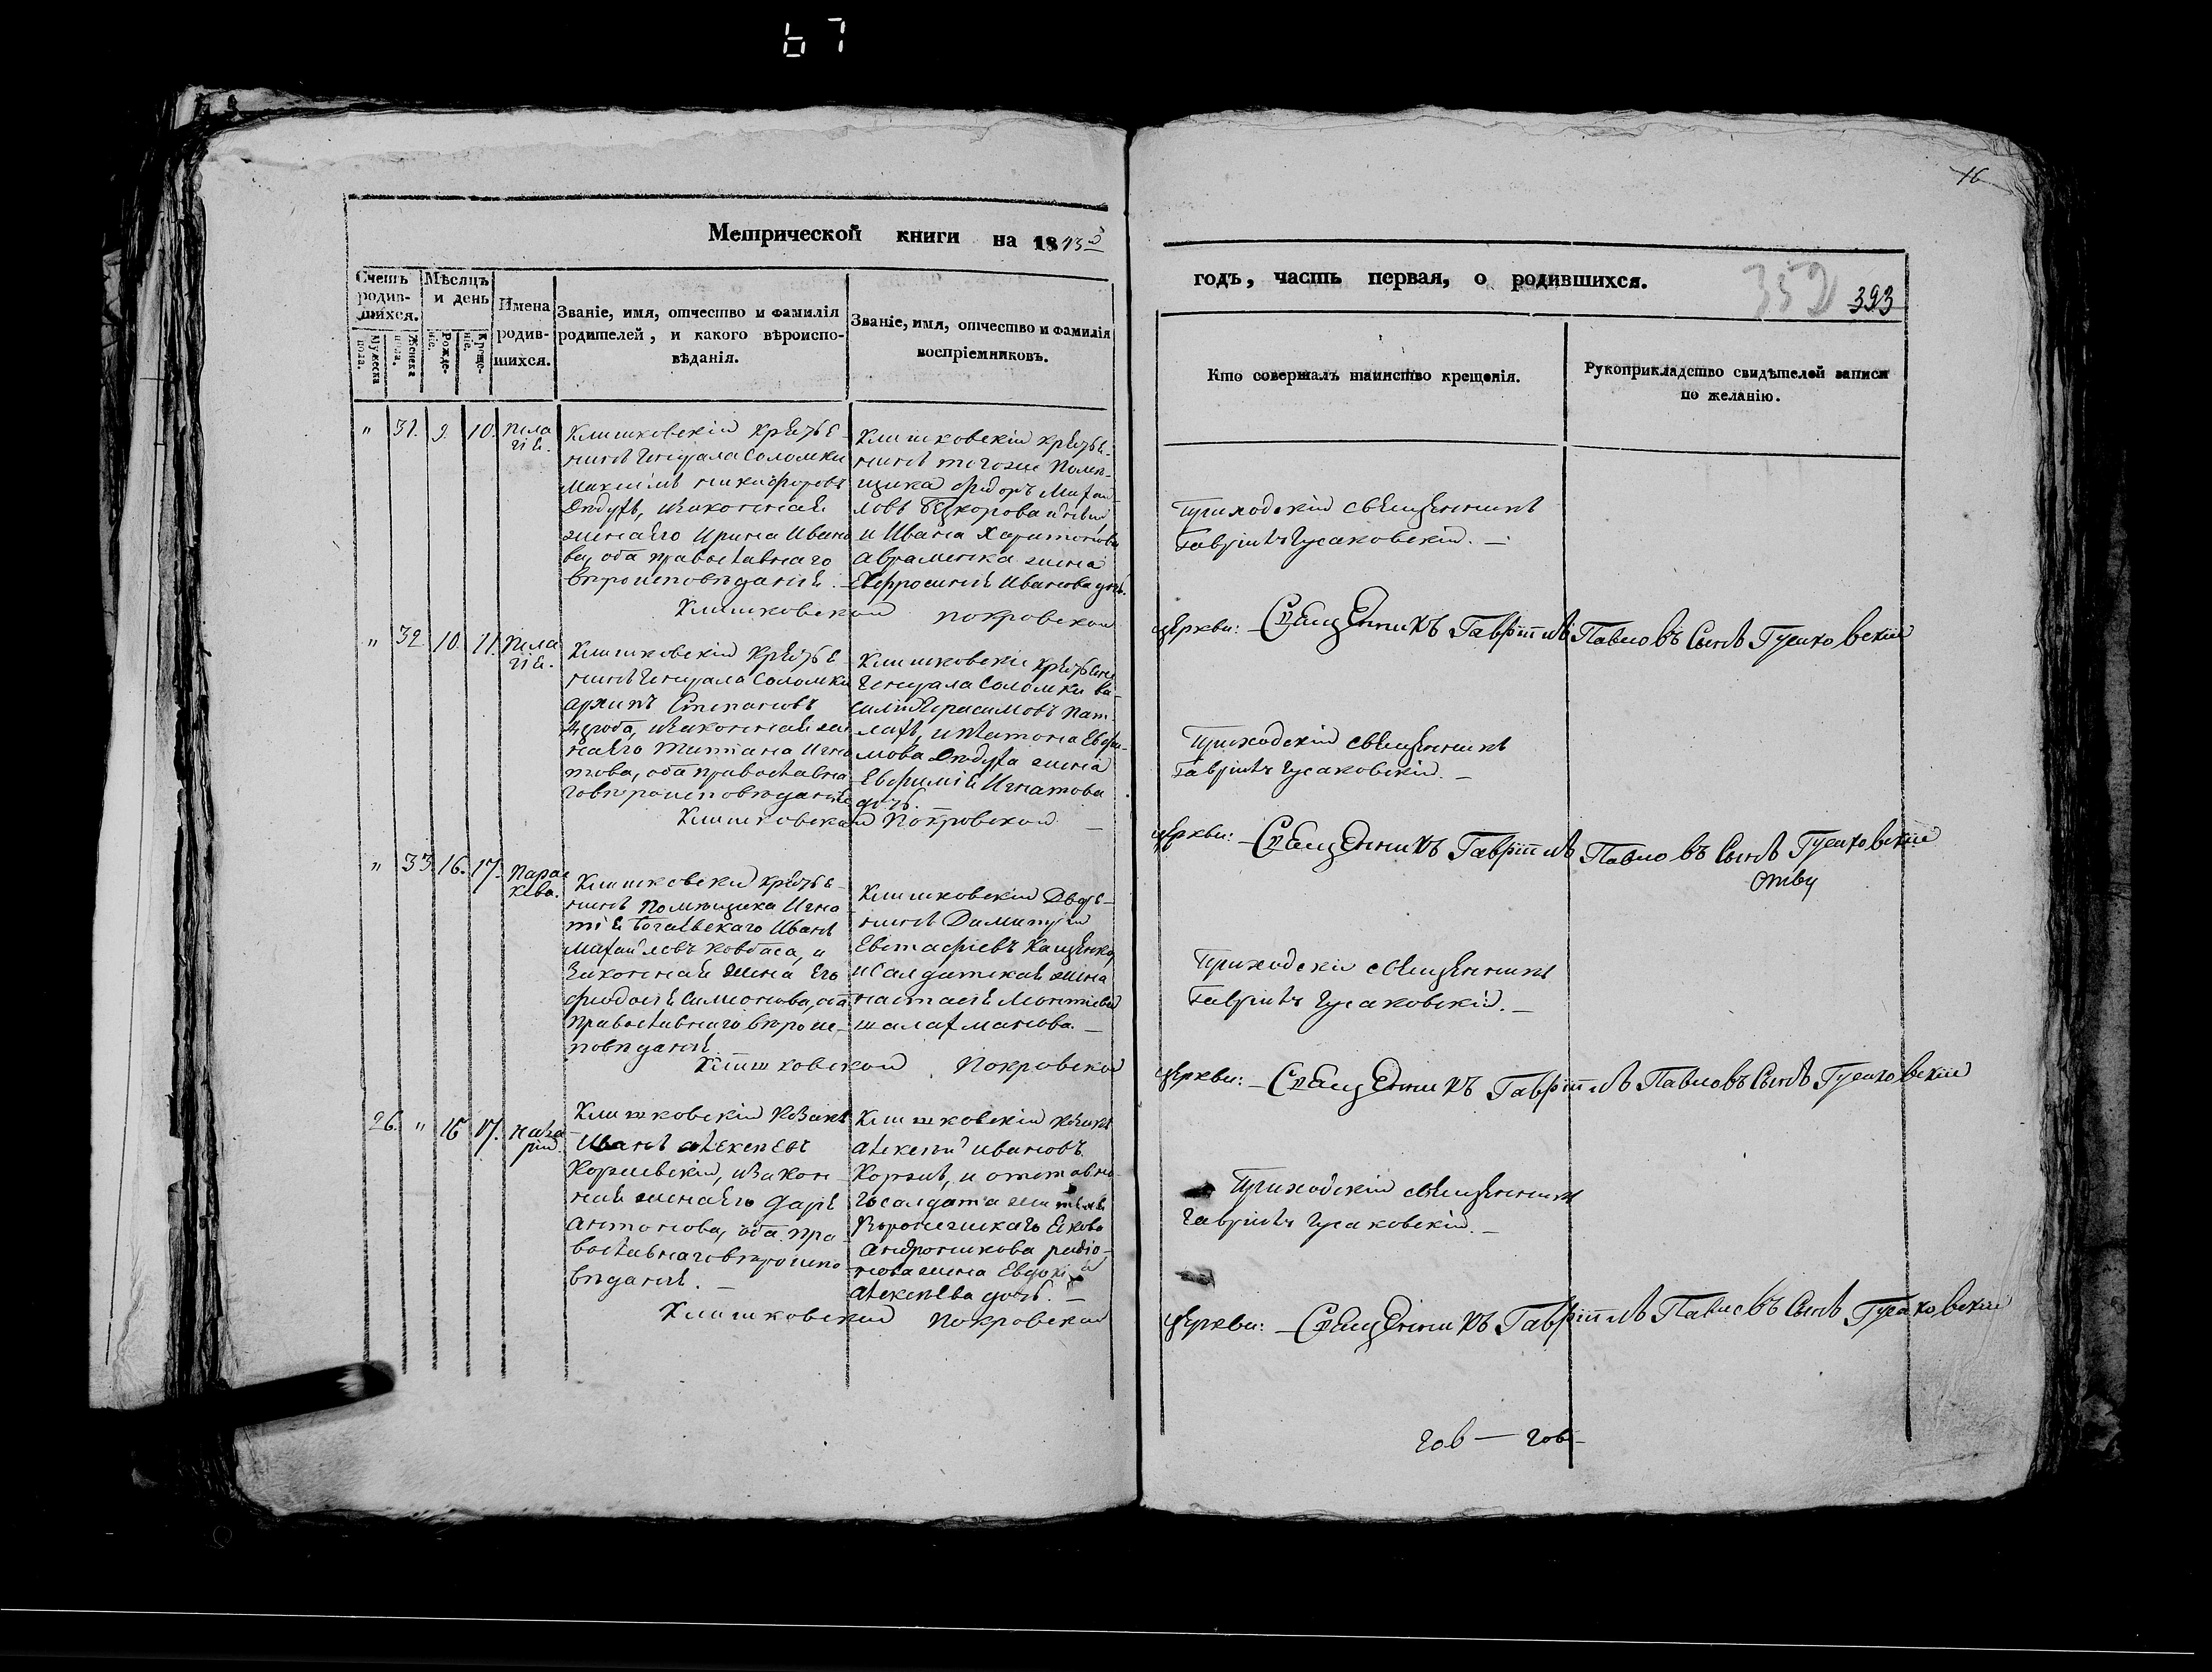 67
16
Метрической книги на 1843й
годъ, часть первая, о родившихся.
352 393
Счетъ родив-шихся.
Мужеска пола.
Женска пола.
Мѣсяцъ и день
Рожде-ніе.
Креще-ніе.
Имена родив-шихся.
Званіе, имя, отчество и фамилія
родителей, и какого вѣроиспо-
вѣданія.
Званіе, имя, отчество и фамилія
воспріемниковъ.
Кто совершалъ таинство крещенія.
Рукоприкладство свидѣтелей записи
по желанію.
" 31. 9. 10. Пела
гія.
Клишковскій крестья-
нинъ Генерала Соломки
Максимъ Никифоровъ
Дедухъ, изаконная
жена его Ирина Ивано
ва, оба православнаго
вѣроисповѣданія.
Клишковскій крестья-
нинъ тогоже Поме-
щика Фидоръ Михай
ловъ
и Ивана Харитонова
Авраменка жена
Евфросинія Иванова дочь.
Приходскій священникъ
Гавріилъ Гусаковскій. —
Клишковской Покровской
церкви: Священникъ Гавріилъ Павловъ Сынъ Гусаковскій
" 32. 10. 11. Пела
гія.
Клишковскій крестья
нинъ Генерала Соломки
Архипъ Степановъ
изаконная же
на его Татіана Игна
това, оба православна
говѣроисповѣданія
Клишковскій крестьянинъ
Генерала Соломки Ва-
силій Герасимовъ
Мова Дедуха жена
Евфимія Игнатова
дочь.
Приходскій священникъ
Гавріилъ Гусаковскій. —
Клишковской Покровской —
церкви: Священникъ Гавріилъ Павловъ Сынъ Гусаковскій
" 33. 16. 17. Парас
кева.
Клишковскій крестья-
нинъ Помѣщика Игна
тія Богаевскаго Иванъ
Михайловъ Ковбаса, и
законная жена его
Феодосія Симонова, оба
православнаго вѣроис-
повѣданія.
Клишковскій Дворя-
нинъ Димитрій
Евстафіевъ Кащенко,
и Салдатская жена
Настасія Монтіева
Шалахманова. —
Приходскій священникъ
Гавріилъ Гусаковскій. —
Клишковской Покровской
церкви: — Священникъ Гавріилъ Павловъ Сынъ Гусаковскій
26. " 16 17. Наза
рій.
Клишковскій козакъ
Иванъ Алексѣевъ
Коржевскій, изакон
ная жена его Дарія
Антонова, оба пра-
вославнаго вѣроиспо
вѣданія. —
Клишковскій козакъ
Алексѣй Ивановъ
Коржъ, и отставно
госалдата жителя
Воронежскаго Якова
Андроникова Радіо-
нова жена Евдокія
Алексѣева дочь. —
Приходскій священникъ
Гавріилъ Гусаковскій. —
Клишковской Покровской
церкви: — Священникъ Гавріилъ Павловъ Сынъ Гусаковскій
гов — гов